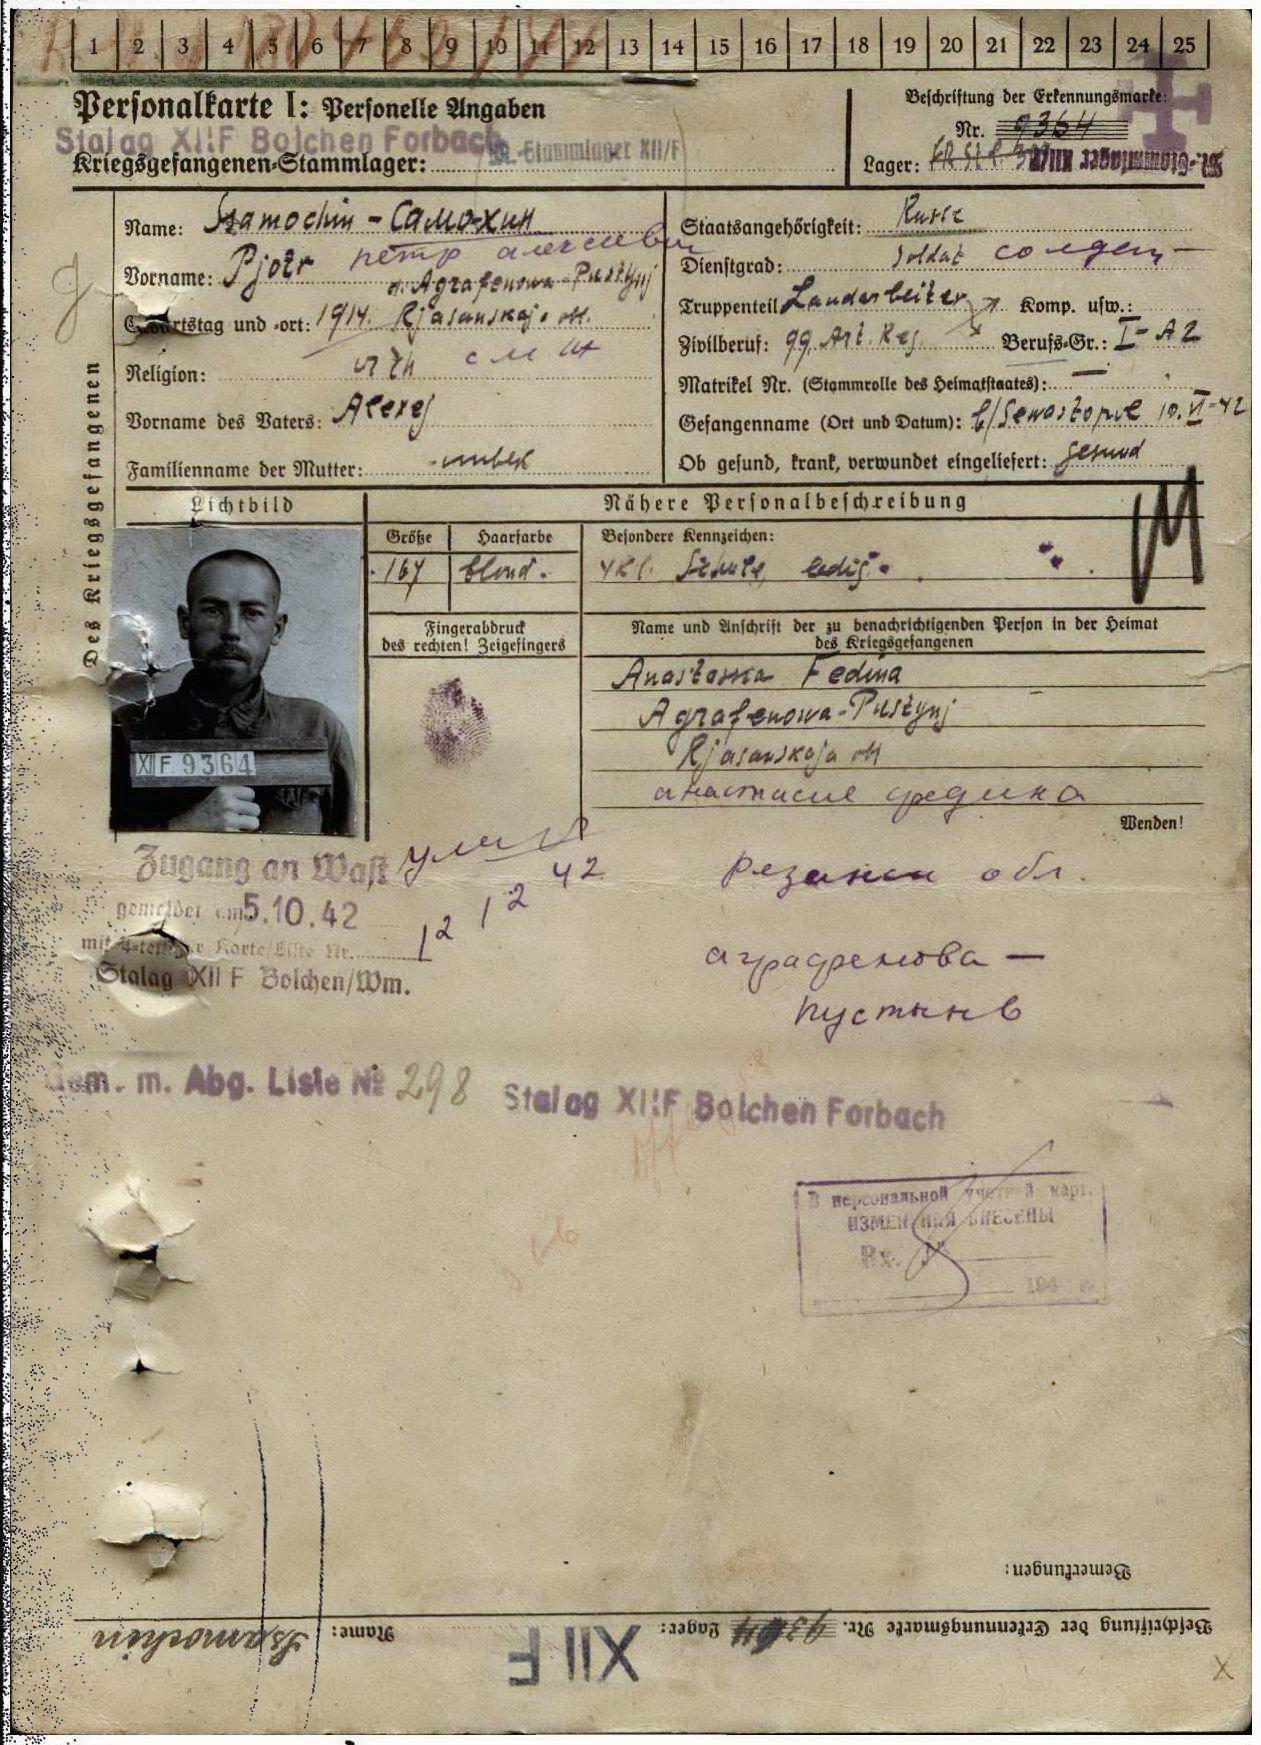 1 2 3 4 5 6 7 8 9 10 11 12 13 14 15 16 17 18 19 20 21 22 23 24 25
Personalkarte I: Personelle Angaben
Beschriftung der Erkennungsmarke:
Nr. 9364
Stalag XII F Bolchen Forbach
Kriegsgefangenen-Stammlager: M.-Stammlager XII/F
Lager:
Des Kriegsgefangenen
Name: Szamochin - Самохин
Staatsangehörigkeit: Russe
Vorname: Pjotr Петр алексеевич
Dienstgrad: Soldat солдат
d. Agrafenowa-Pustynj
Truppenteil Landarbeiter Komp. usw.:
Geburtstag und -ort: 1914. Rjasanskaja
Zivilberuf: 99. Art. Reg. Berufs-Gr.: I - A2
Religion:
Matrikel Nr. (Stammrolle des Heimatstaates): —
Vorname des Vaters: Alexej
Gefangenname (Ort und Datum): b/Sewastopol 10.VI-42
Familienname der Mutter: unbek
Ob gesund, krank, verwundet eingeliefert: gesund
Lichtbild
Nähere Personalbeschreibung
Größe Haarfarbe Besondere Kennzeichen:
167 blond. 4 Kl. Schule, ledig.
Fingerabdruck
des rechten! Zeigefingers
Name und Anschrift der zu benachrichtigenden Person in der Heimat
des Kriegsgefangenen
Anastasia Fedina
Agrafenowa-Pustynj
Rjasanskaja
анастасие федина
XII F. 9364
Wenden!
Zugang an Wast
gemeldet am 5.10.42
mit 4-teiliger Karte/Liste Nr.
Stalag XII F Bolchen/Wm.
12 12 42
Резански обл.
аграфенова —
пустынь
Gem. m. Abg. Liste № 298
Stalag XII F Bolchen Forbach
В персональной учетной карт.
ИЗМЕНЕНИЯ ВНЕСЕНЫ
Вх. №
194 г.
Bemerkungen:
Beschriftung der Erkennungsmarke Nr. 9364 Lager: XII F Name: Szamochin
X